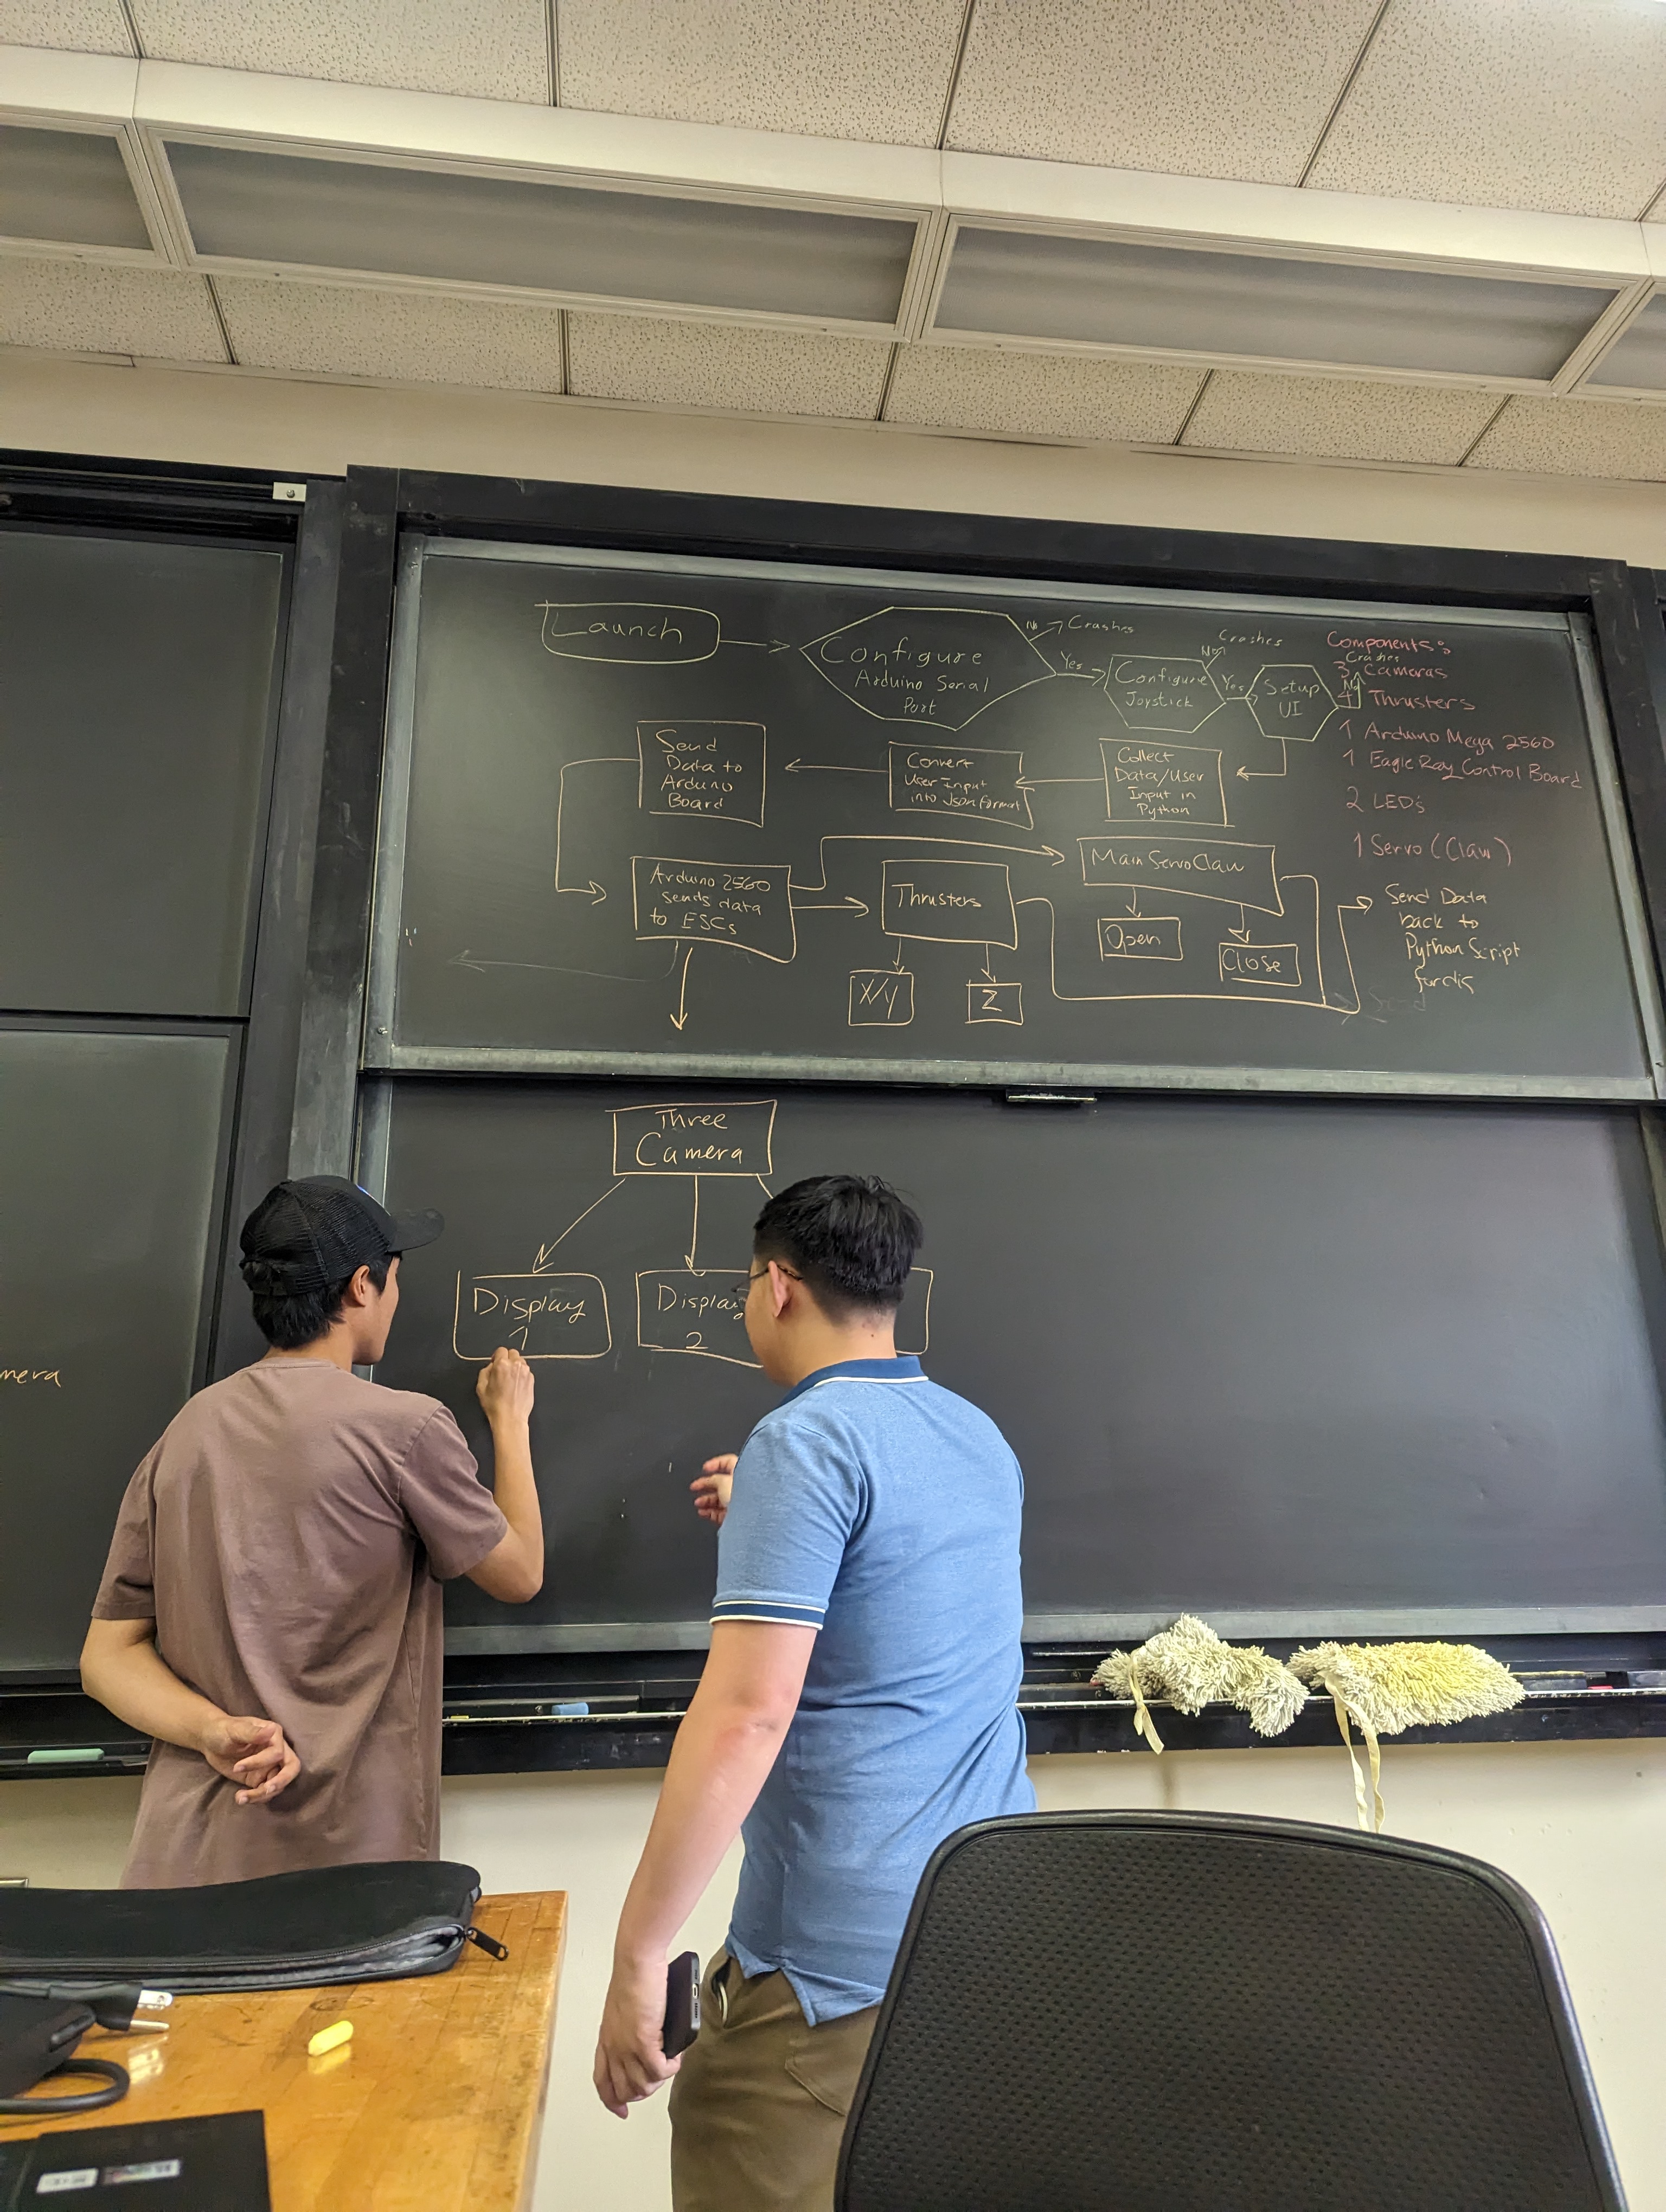 Launch
Configure
Arduino Serial
Port
No
Crashes
Yes
Configure
Joystick
Crashes
Yes
Setup
UI
Crashes
No
Components:
3 Cameras
4 Thrusters
1 Arduino Mega 2560
1 Eagle Ray Control Board
2 LED's
1 Servo (Claw)
Send
Data to
Arduino
Board
Convert
User Input
into Json format
Collect
Data/User
Input in
Python
Arduino 2560
sends data
to ESCs
Thrusters
X/Y
Z
Main Servo Claw
Open
Close
Send Data
back to
Python Script
for dis
Send
Three
Camera
Display
1
Display
2
mera